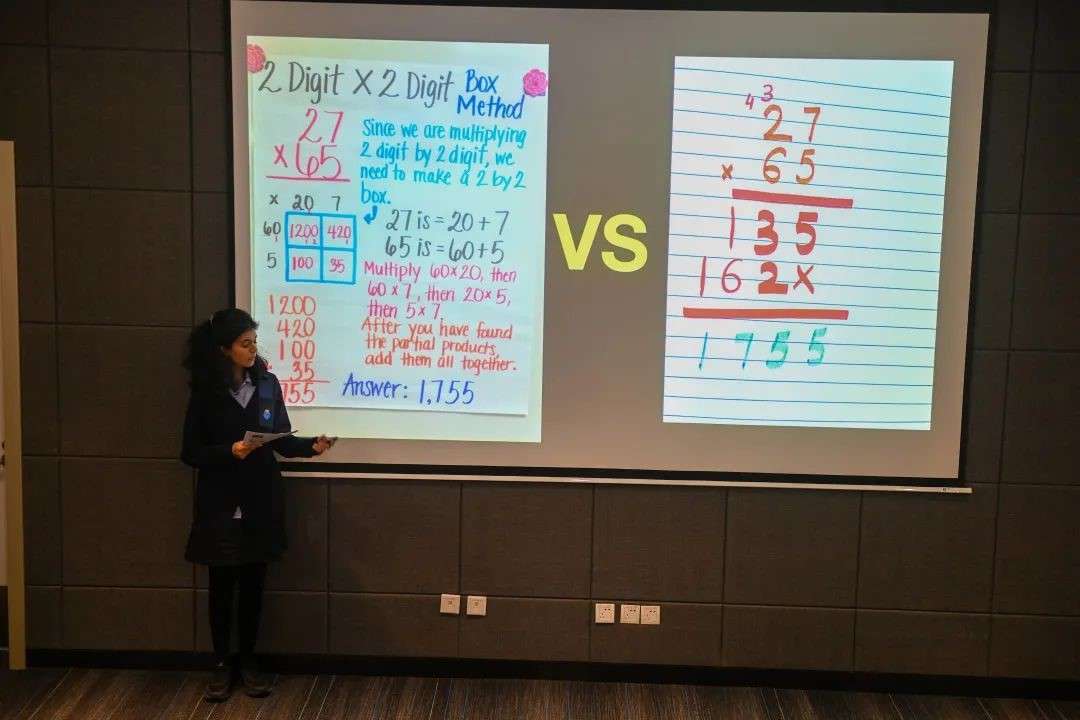 2 Digit X 2 Digit Box Method
27
x 65
Since we are multiplying
2 digit by 2 digit, we
need to make a 2 by 2
box.
x 20 7
60 1200 420
5 100 35
27 is = 20 + 7
65 is = 60 + 5
Multiply 60 x 20, then
60 x 7, then 20 x 5,
then 5 x 7.
After you have found
the partial products,
add them all together.
1200
420
100
35
755
Answer: 1,755
VS
4 3
27
x 65
135
162x
1755